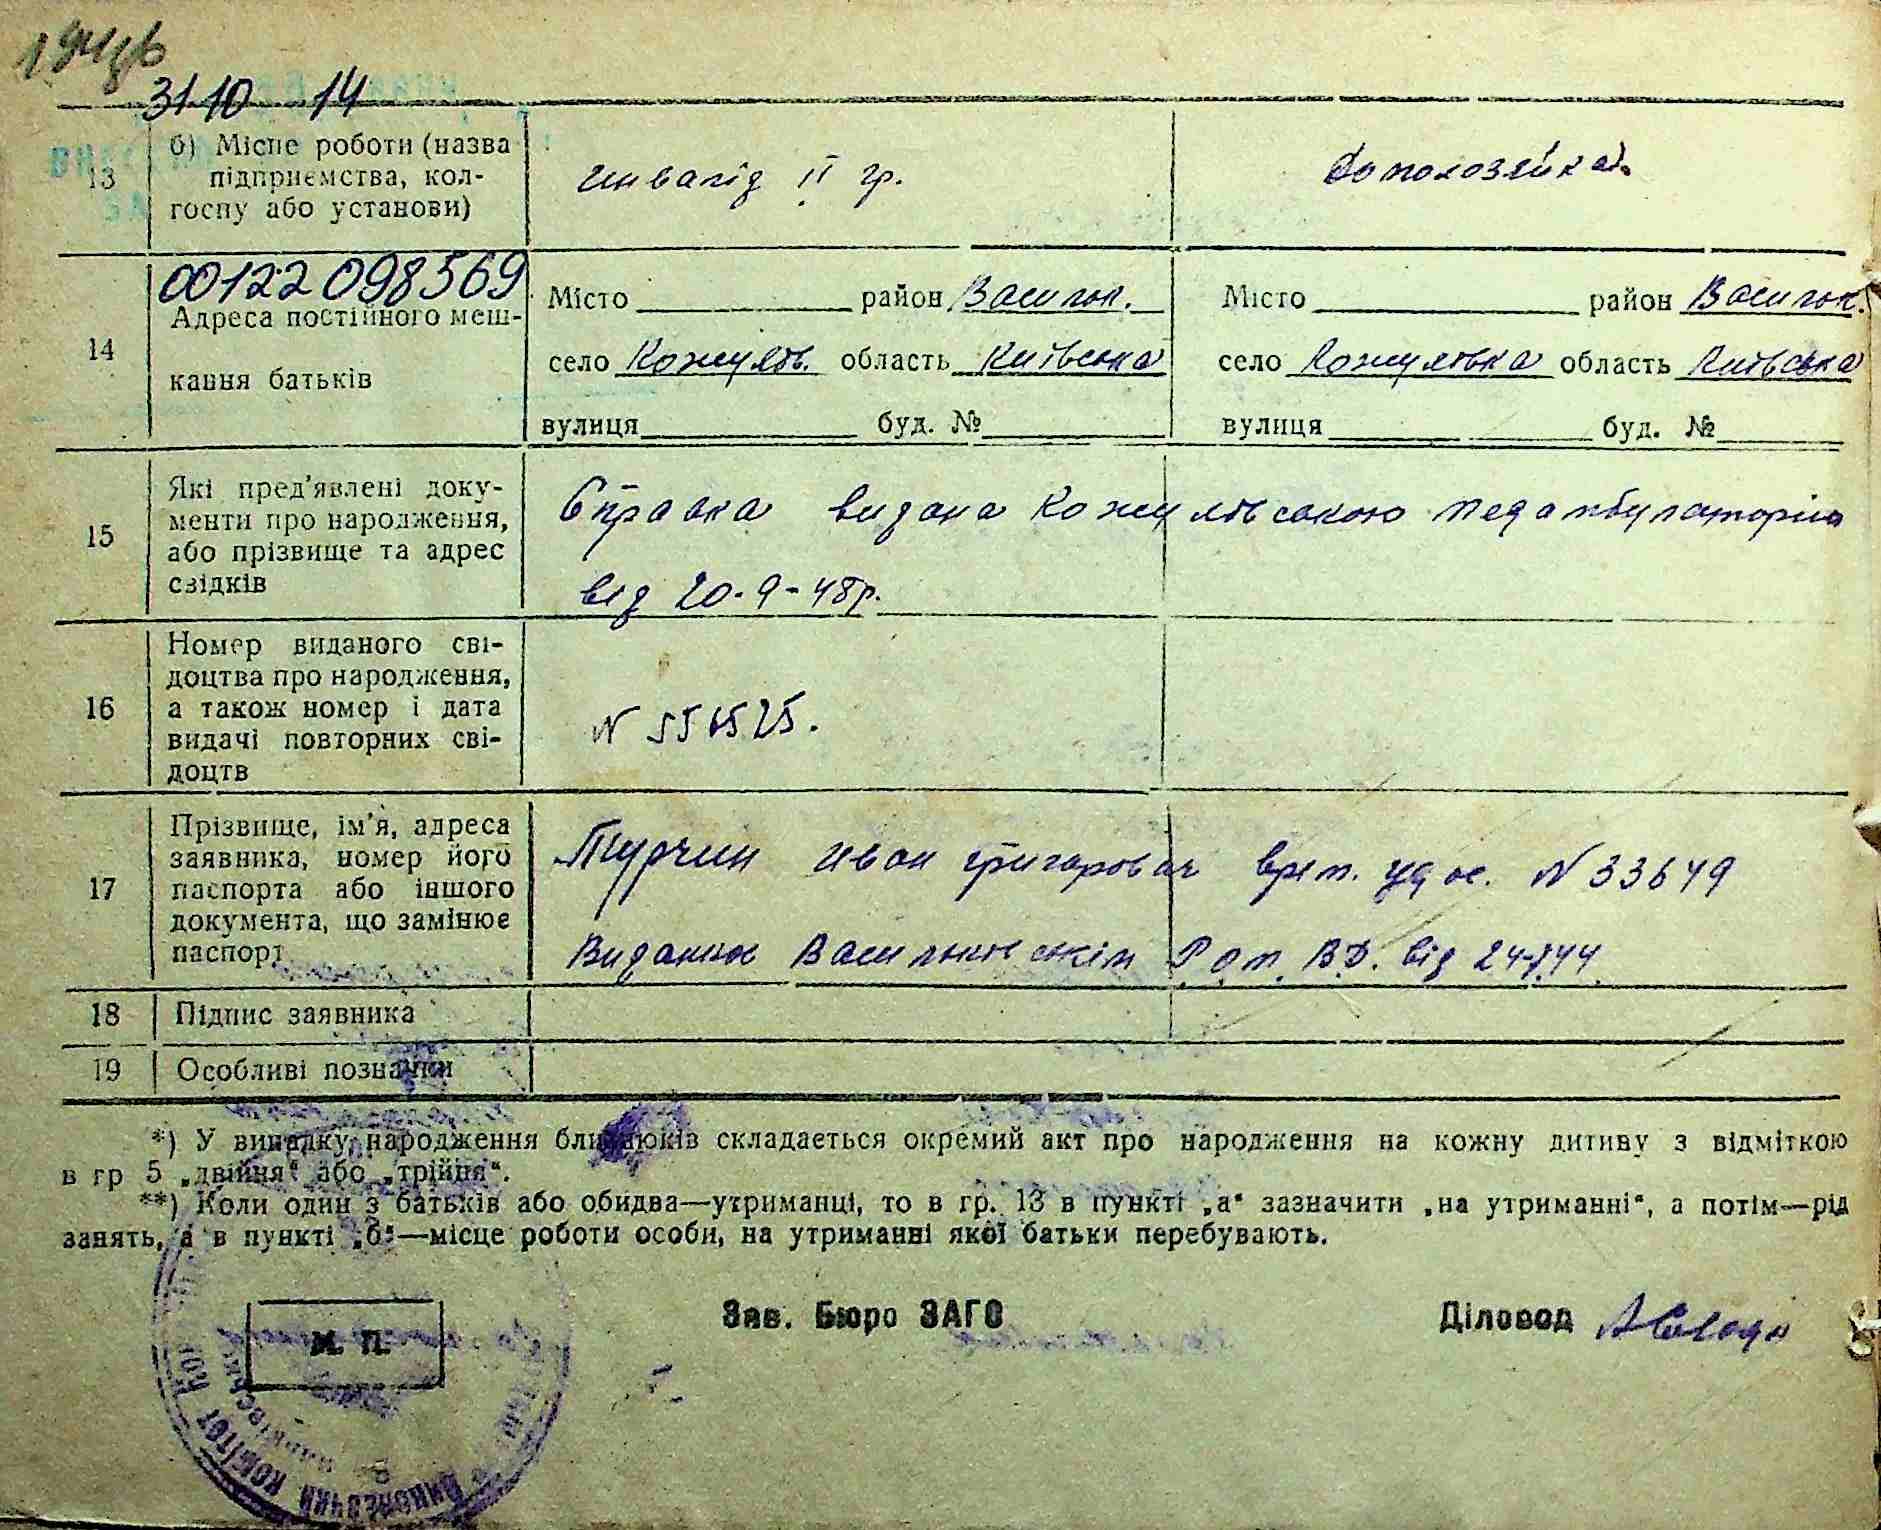 31 10 14
13 б) Місце роботи (назва підприємства, колгоспу або установи)
инвалід II гр.
домохозяйка.
00122 098569
14 Адреса постійного мешкання батьків
Місто район Васильк.
село Кожухів. область Київська
вулиця буд. №
Місто район Васильк.
село Кожухівка область Київська
вулиця буд. №
15 Які пред'явлені документи про народження, або прізвище та адрес свідків
Справка видана Кожухівською медамбулаторією
від 20-9-48р.
16 Номер виданого свідоцтва про народження, а також номер і дата видачі повторних свідоцтв
N
17 Прізвище, ім'я, адреса заявника, номер його паспорта або іншого документа, що замінює паспорт
Турчин Иван Григорович врем. удос. N 33649
Видання Васильковським Р.О.М. В.Д. від
18 Підпис заявника
19 Особливі позначки
*) У випадку народження близнюків складається окремий акт про народження на кожну дитину з відміткою
в гр 5 „двійня“ або „трійня“.
**) Коли один з батьків або обидва—утриманці, то в гр. 13 в пункті „а“ зазначити „на утриманні“, а потім—рід
занять, а в пункті „б“—місце роботи особи, на утриманні якої батьки перебувають.
М. П.
Зав. Бюро ЗАГС
Діловод